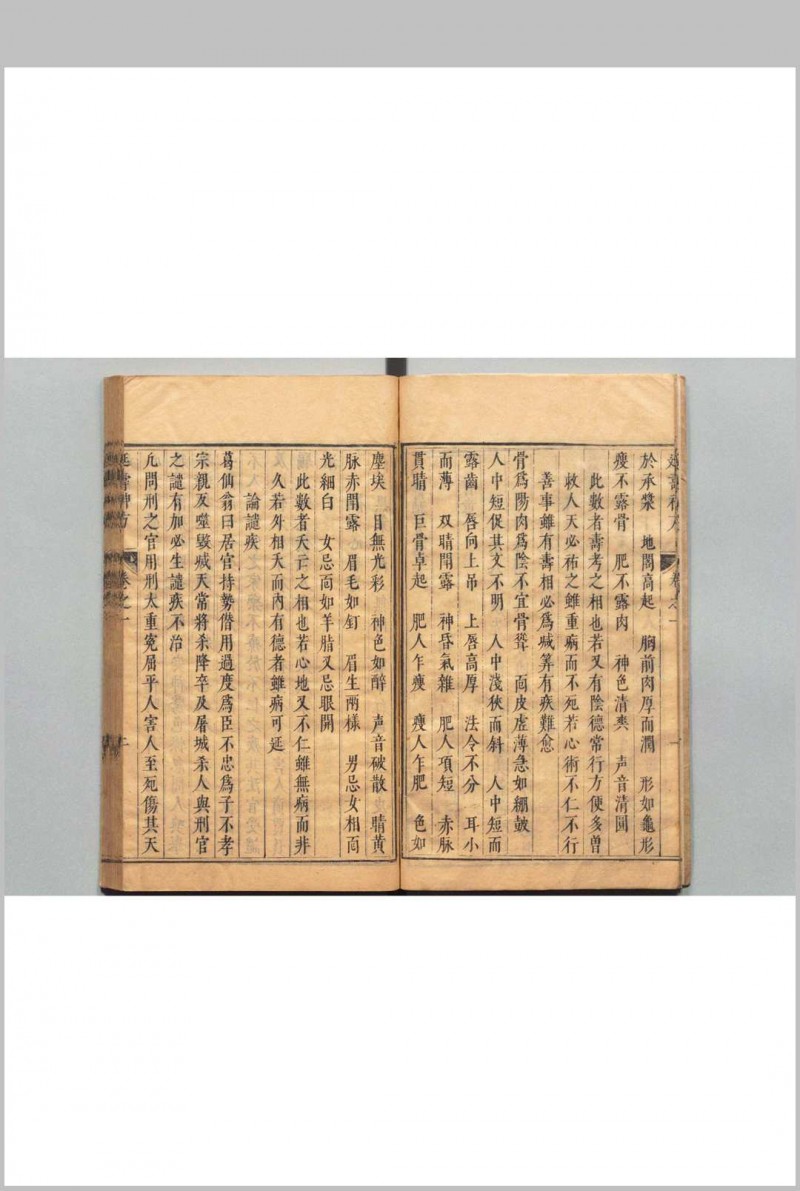 於承漿　地閣高起　胸前肉厚而濶　形如龜形
瘦不露骨　肥不露肉　神色清爽　声音清圓
此數者壽考之相也若又有陰德常行方便多曽
救人天必祐之雖重病而不死若心術不仁不行
善事雖有壽相必爲喊筭有疾難愈
骨爲陽肉爲陰不宜骨聳　面皮虛薄急如綳皷
人中短促其文不明　人中淺狹而斜　人中短而
露齒　唇向上吊　上唇高厚　法令不分　耳小
而薄　双睛閗露　神昏氣雜　肥人項短　赤脉
貫睛　巨骨卓起　肥人乍瘦　瘦人乍肥　色如
塵埃　目無光彩　神色如醉　声音破散　睛黄
脉赤閗露　眉毛如釘　眉生兩樣　男忌女相面
光細白　女忌面如羊脂又忌眼開
此數者夭亡之相也若心地又不仁雖無病而非
久若外相夭而內有德者雖病可延
論譴疾
葛仙翁曰居官持勢僣用過度爲臣不忠爲子不孝
宗親反噬毀喊天常將杀降卒及屠城杀人與刑官
之譴有加必生譴疾不治
凢問刑之官用刑太重寃屈平人害人至死傷其天
延壽神方　卷之一　二